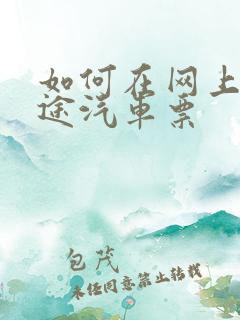 如何在网上
途汽车票
包茂
未经同意禁止转载